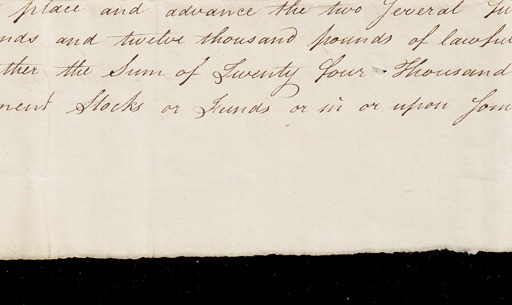 place and advance the two several
nds and twelve thousand pounds of lawful
ther the Sum of Twenty four Thousand
ment Stocks or Funds or in or upon som